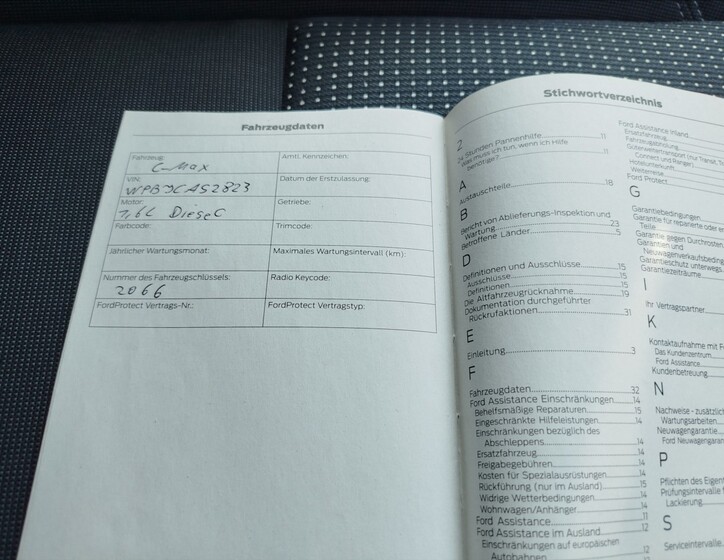 Fahrzeugdaten
Fahrzeug: C-Max
Amtl. Kennzeichen:
VIN: WPBJCAS2823
Datum der Erstzulassung:
Motor: 1,6L Diesel
Getriebe:
Farbcode:
Trimcode:
Jährlicher Wartungsmonat:
Maximales Wartungsintervall (km):
Nummer des Fahrzeugschlüssels: 2066
Radio Keycode:
FordProtect Vertrags-Nr.:
FordProtect Vertragstyp:
Stichwortverzeichnis
2
24 Stunden Pannenhilfe 11
Was muss ich tun, wenn ich Hilfe
benötige? 11
A
Austauschteile 18
B
Bericht von Ablieferungs-Inspektion und
Wartung 23
Betroffene Länder 5
D
Definitionen und Ausschlüsse 15
Ausschlüsse 15
Definitionen 15
Die Altfahrzeugrücknahme 19
Dokumentation durchgeführter
Rückrufaktionen 31
E
Einleitung 3
F
Fahrzeugdaten 32
Ford Assistance Einschränkungen 14
Behelfsmäßige Reparaturen 15
Eingeschränkte Hilfeleistungen 14
Einschränkungen bezüglich des
Abschleppens 14
Ersatzfahrzeug 14
Freigabegebühren 14
Kosten für Spezialausrüstungen 14
Rückführung (nur im Ausland) 15
Widrige Wetterbedingungen 14
Wohnwagen/Anhänger 14
Ford Assistance 11
Ford Assistance im Ausland 12
Einschränkungen auf europäischen
Autobahnen 12
Ford Assistance Inland
Ersatzfahrzeug
Fahrzeugabholung
Gütertransport (nur Transit,
Connect und Ranger)
Hotelunterkunft
Weiterreise
Ford Protect
G
Garantiebedingungen
Garantie für reparierte oder er
Teile
Garantie gegen Durchrosten
Garantien und
Neuwagenverkaufsbeding
Garantieschutz unterwegs
Garantiezeiträume
I
Ihr Vertragspartner
K
Kontaktaufnahme mit F
Das Kundenzentrum
Ford Assistance
Kundenbetreuung
N
Nachweise - zusätzlic
Wartungsarbeiten
Neuwagengarantie
Ford Neuwagengaran
P
Pflichten des Eigen
Prüfungsintervalle f
Lackierung
S
Serviceintervalle